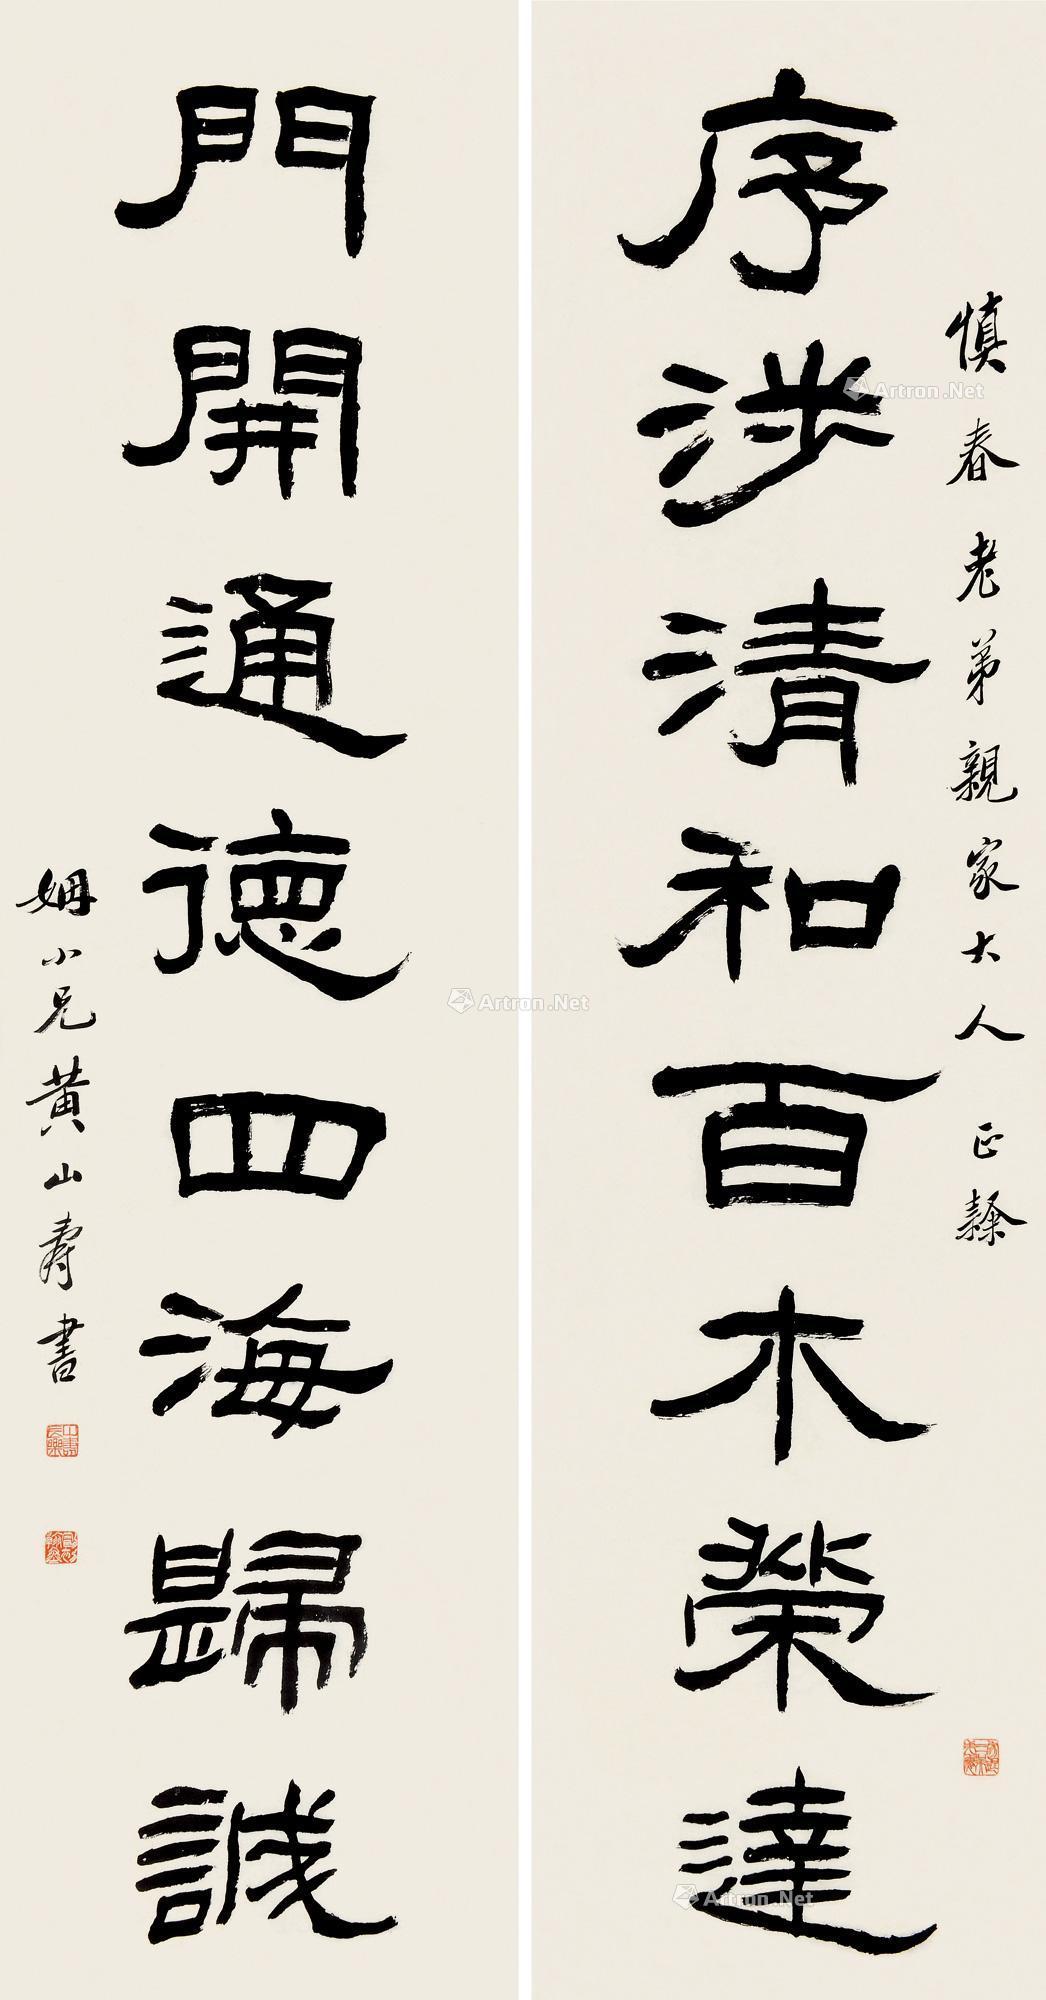 慎春老弟親家大人正隸
序涉清和百木榮達
門開通德四海歸誠
姻小兄黃山壽書
Artron.Net
Artron.Net
Artron.Net